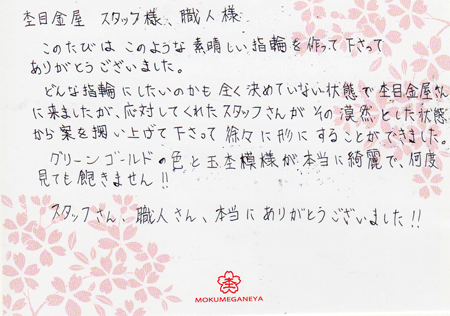 杢目金屋 スタッフ様、職人様
このたびは このような素晴しい指輪を作って下さって
ありがとうございました。
どんな指輪にしたいのかも全く決めていない状態で杢目金屋さん
に来ましたが、応対してくれたスタッフさんが その漠然とした状態
から案を掬い上げて下さって 徐々に形にすることができました。
グリーンゴールドの色と玉杢模様が本当に綺麗で、何度
見ても飽きません!!
スタッフさん、職人さん、本当にありがとうございました!!
MOKUMEGANEYA